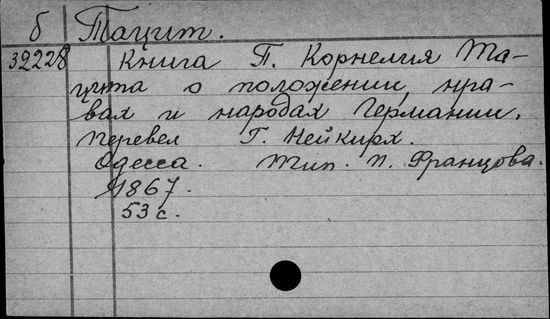 б Тацит.
32228 Книга П. Корнелия Та-
цита о положении, нра-
вах и народах Германии.
Перевел Г. Нейкирх.
Одесса. Тип. П. Францова.
1867.
53 с.